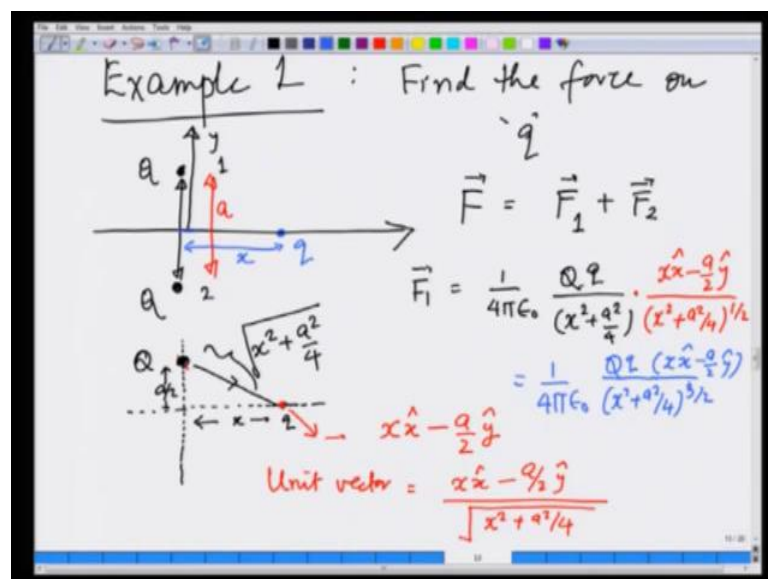 File Edit View Insert Actions Tools Help
Example 1 : Find the force on
'q'
y
Q 1
a
x q
Q 2
F⃗ = F⃗₁ + F⃗₂
F⃗₁ = 1/4πϵ₀ Qq/(x²+a²/4) · (xx̂ - a/2 ŷ)/(x²+a²/4)^1/2
= 1/4πϵ₀ Qq (xx̂ - a/2 ŷ)/(x²+a²/4)^3/2
√x² + a²/4
Q
a/2
← x → q
xx̂ - a/2 ŷ
Unit vector = (xx̂ - a/2 ŷ)/√x² + a²/4